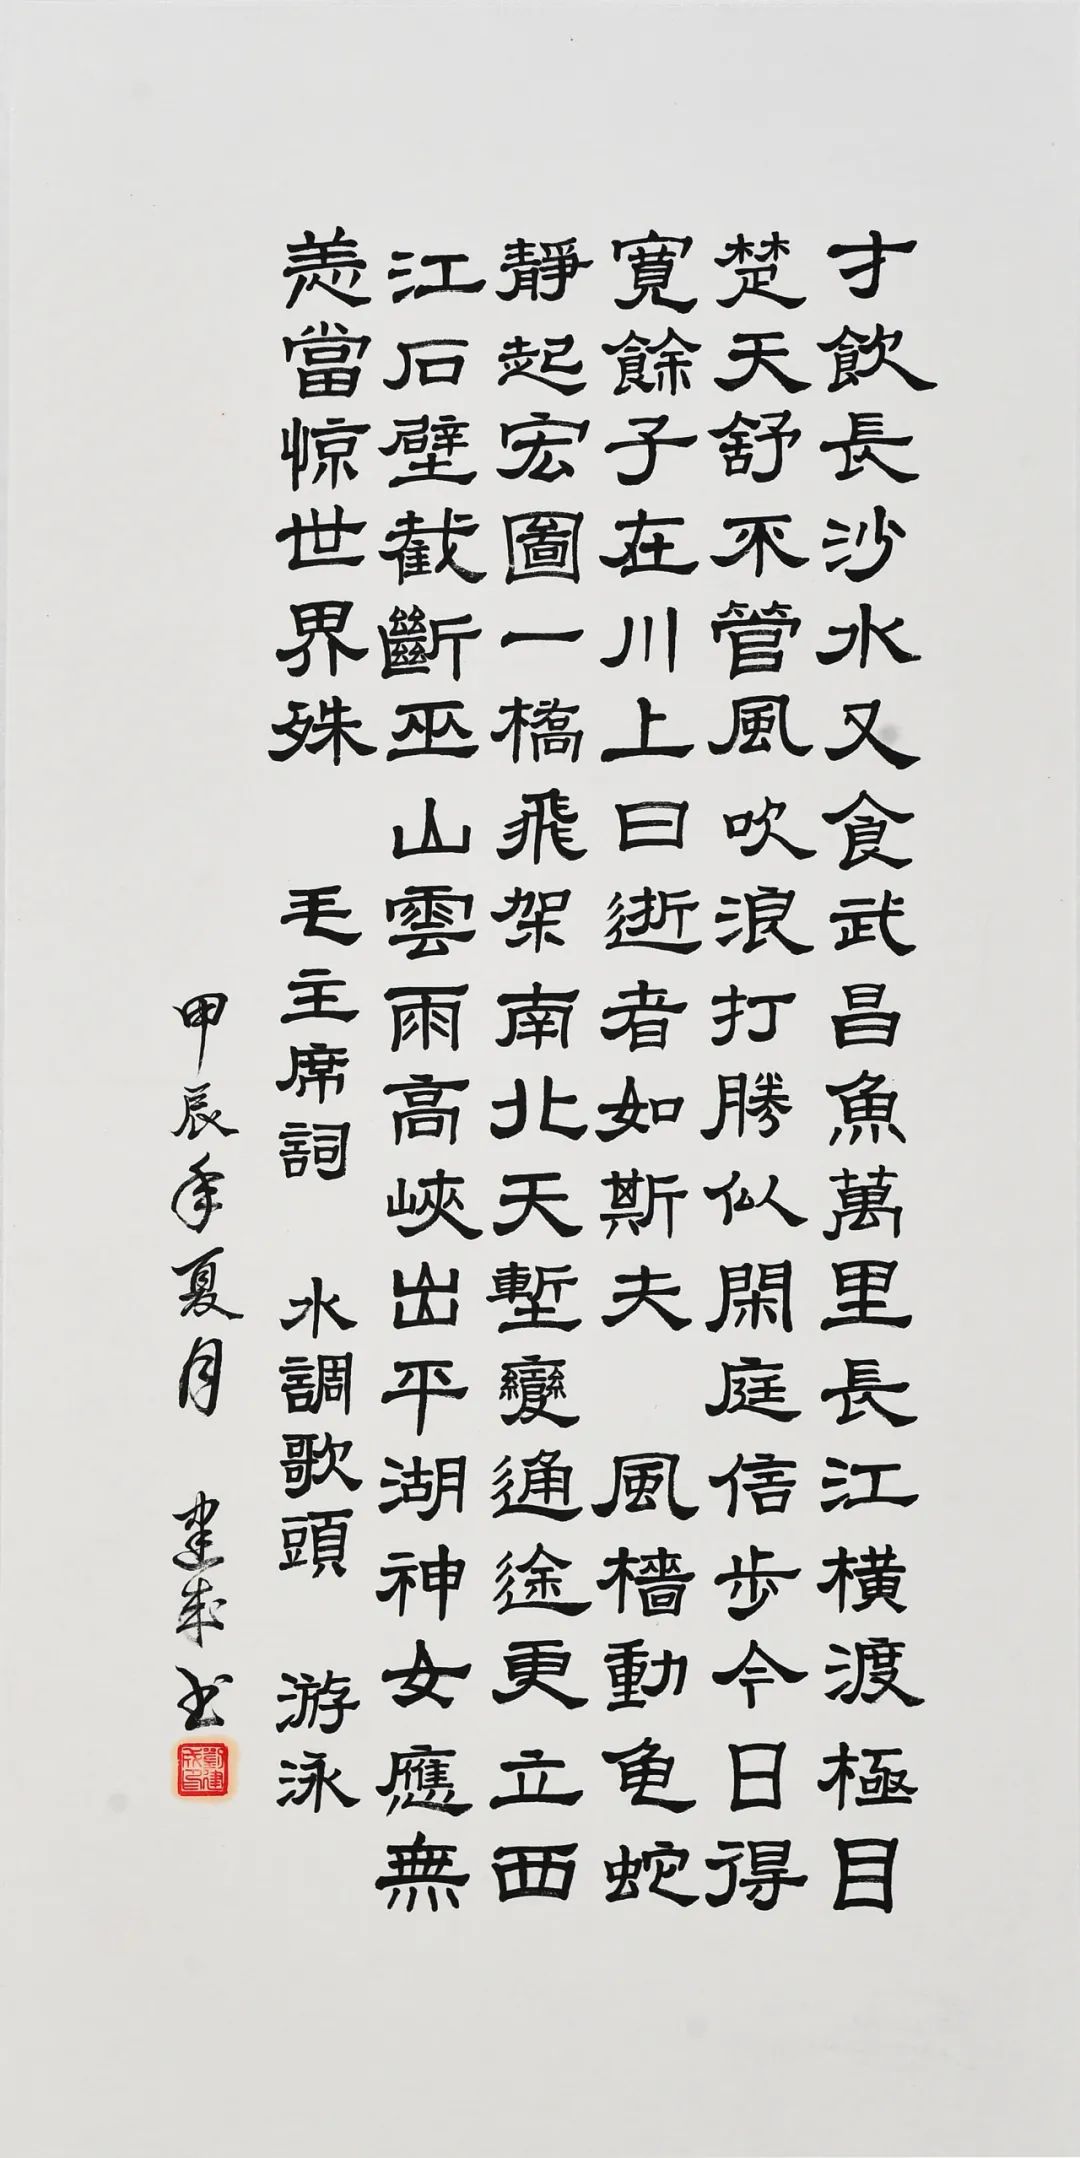 才飲長沙水又食武昌魚萬里長江橫渡極目
楚天舒不管風吹浪打勝似閑庭信步今日得
寬餘子在川上曰逝者如斯夫 風檣動龟蛇
靜起宏圖一橋飛架南北天塹變通途更立西
江石壁截斷巫山雲雨高峽出平湖神女應無
恙當惊世界殊 毛主席詞 水調歌頭 游泳
甲辰年夏月 建成书
鄧建成印